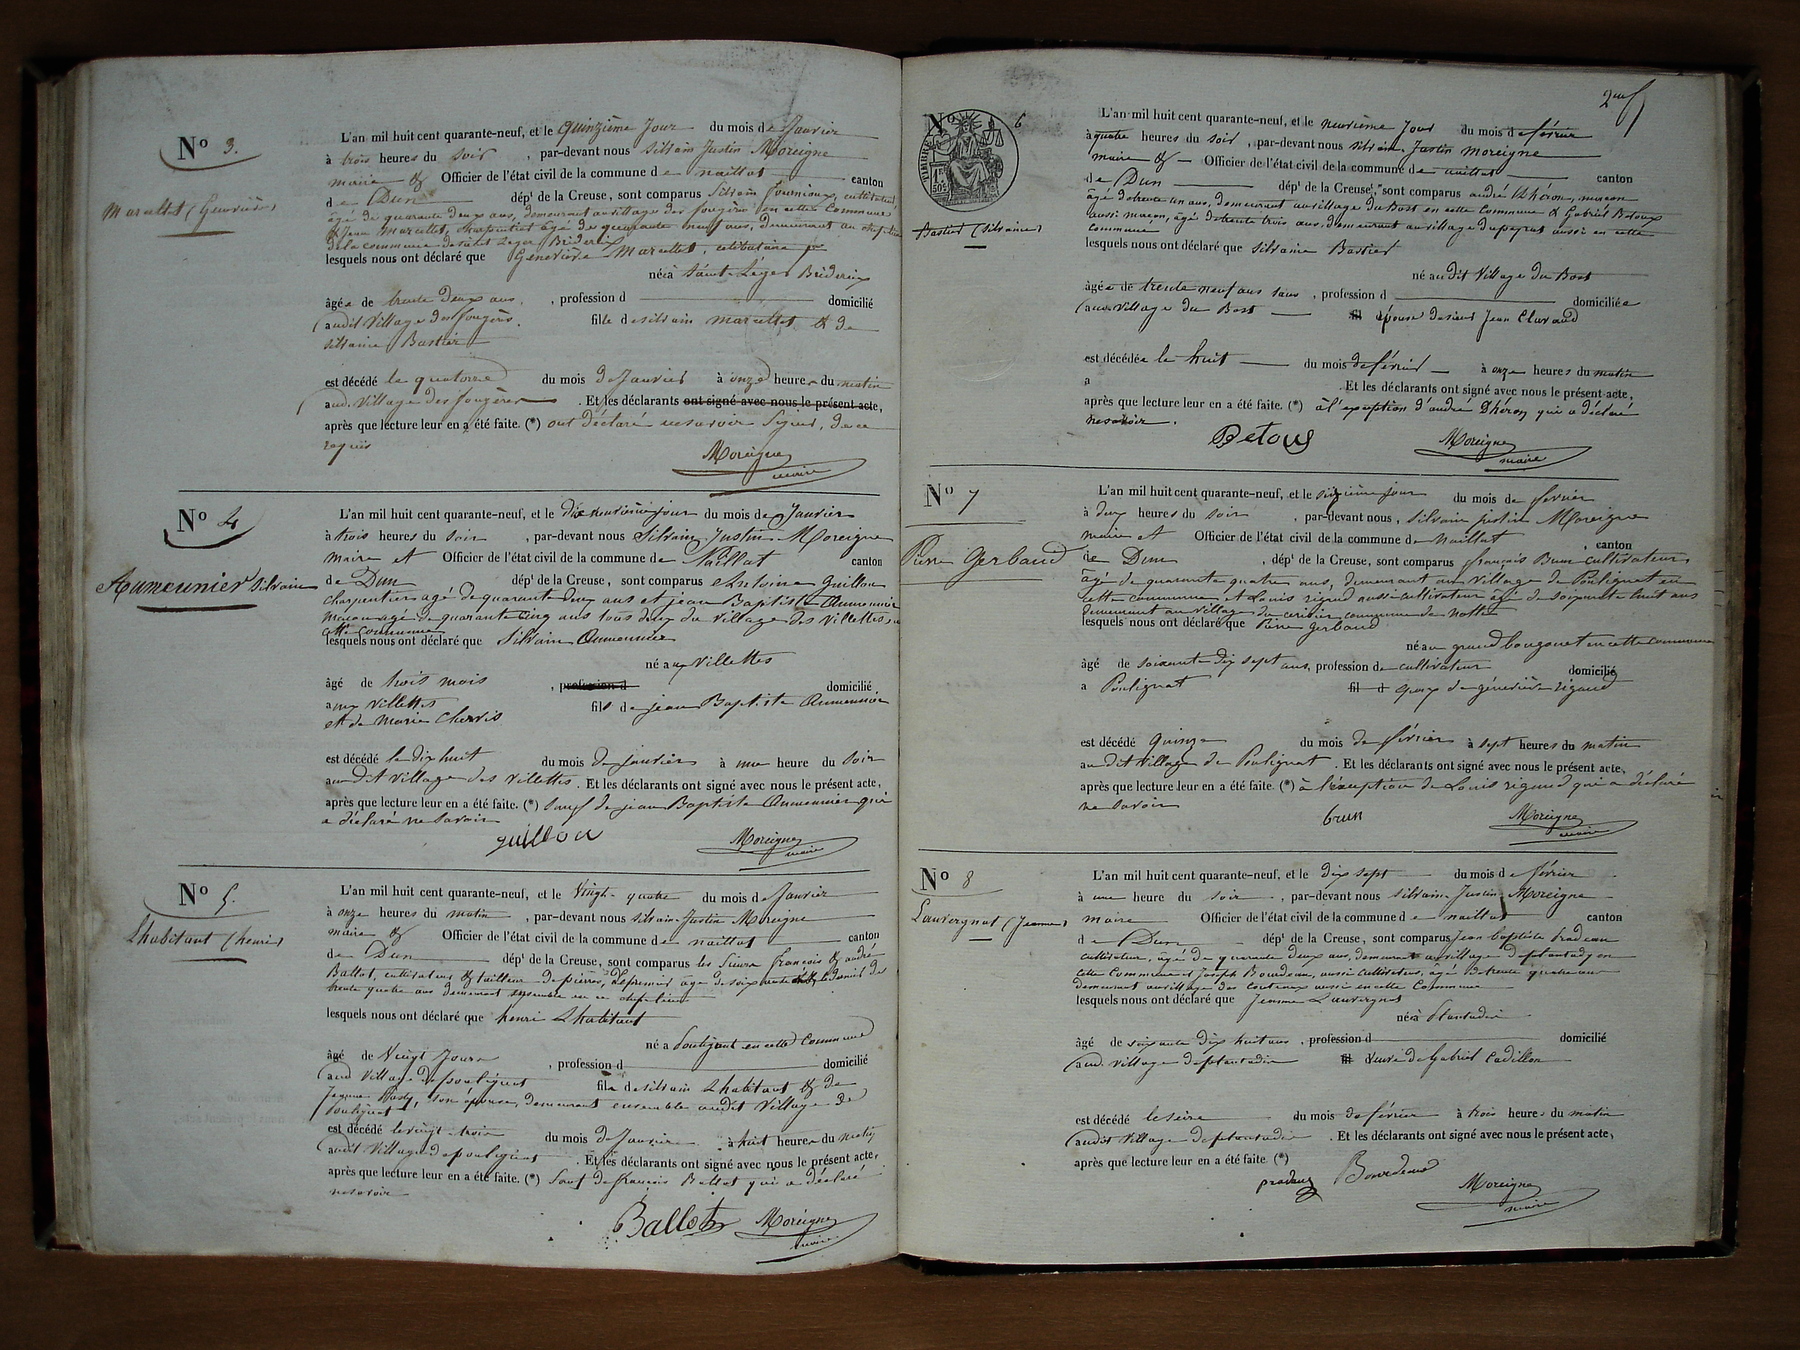 N° 3.
Marcellot (Geneviève)
L'an mil huit cent quarante-neuf, et le quinzième Jour du mois de Janvier
à trois heures du soir, par-devant nous Silvain Justin Moreigne
maire & Officier de l'état civil de la commune de naillat canton
de Dun dép.t de la Creuse, sont comparus Silvain fournioux, cultivateur
âgé de quarante deux ans, demeurant au village des fougères en cette Commune
& Jean Marcellot, charpentier âgé de quarante neuf ans, demeurant au chef-lieu
de la commune de saint Leger Bridereix
lesquels nous ont déclaré que Geneviève Marcellot, célibataire
née à Saint Léger Bridereix
âgée de trente deux ans, profession d domicilié
audit Village des fougères. fille de silvain marcellot & de
silvaine Bastier
est décédé le quatorze du mois de Janvier à onze heures du matin
aud. Village des fougères. Et les déclarants ont signé avec nous le présent acte,
après que lecture leur en a été faite. (*) ont déclaré ne savoir signer, de ce
requis
Moreigne
maire
N° 4
Aumeunier Silvain
L'an mil huit cent quarante-neuf, et le dix neuvième jour du mois de Janvier
à trois heures du soir, par-devant nous Silvain Justin Moreigne
maire et Officier de l'état civil de la commune de Naillat canton
de Dun dép.t de la Creuse, sont comparus Antoine Guillon
charpentier agé de quarante deux ans et jean Baptiste Aumeunier
maçon agé de quarante cinq ans tous deux du village des Villettes
cette commune
lesquels nous ont déclaré que Silvain Aumeunier
né aux Villettes
âgé de trois mois, profession d domicilié
aux Villettes fils de jean Baptiste Aumeunier
et de Marie
est décédé le dix huit du mois de janvier à une heure du soir
au dit village des Villettes. Et les déclarants ont signé avec nous le présent acte,
après que lecture leur en a été faite. (*) sauf de jean Baptiste Aumeunier qui
a déclaré ne savoir
guillon
Moreigne
maire
N° 5.
Lhabitant (henri)
L'an mil huit cent quarante-neuf, et le Vingt-quatre du mois de Janvier
à onze heures du matin, par-devant nous silvain Justin Moreigne
maire & Officier de l'état civil de la commune de naillat canton
de Dun dép.t de la Creuse, sont comparus les Sieurs françois & andré
Ballot, cultivateur & tailleur de pierres, Le premier âgé de soixante le dernier de
trente quatre ans demeurant ensemble en ce chef-lieu
lesquels nous ont déclaré que henri Lhabitant
né a Poulignat en cette Commune
âgé de Vingt Jours, profession d domicilié
aud Village de poulignat fils de silvain Lhabitant & de
Jeanne son épouse, demeurant ensemble audit Village de
Poulignat
est décédé le vingt-trois du mois de Janvier à huit heures du matin
audit Village de poulignat. Et les déclarants ont signé avec nous le présent acte,
après que lecture leur en a été faite. (*) Sauf de françois Ballot qui a déclaré
ne savoir
Ballot
Moreigne
maire
2me
N° 6
TIMBRE
Bastier (Silvaine)
L'an mil huit cent quarante-neuf, et le neuvième Jour du mois de février
à quatre heures du soir, par-devant nous silvain Justin moreigne
maire & Officier de l'état civil de la commune de naillat canton
de Dun dép.t de la Creuse, sont comparus andré Dhéron, maçon
âgé de trente un ans, demeurant au village du Bost en cette Commune & Gabriel Betoux
aussi maçon, âgé de trente trois ans, demeurant au village du peyrat aussi en cette
Commune
lesquels nous ont déclaré que silvaine Bastier
né audit Village du Bost
âgée de trente neuf ans, profession d domiciliée
aud. Village du Bost épouse de sieur Jean
est décédée le huit du mois de février à onze heures du matin
a . Et les déclarants ont signé avec nous le présent acte,
après que lecture leur en a été faite. (*) à l'exception d'andré Dhéron qui a déclaré
ne savoir.
Betoux
Moreigne
maire
N° 7
Pierre Gerbaud
L'an mil huit cent quarante-neuf, et le seizième jour du mois de fevrier
à deux heures du soir, par-devant nous, silvain justin Moreigne
maire et Officier de l'état civil de la commune de Naillat, canton
de Dun, dép.t de la Creuse, sont comparus françois Brun cultivateur
âgé de quarante quatre ans, demeurant au village de Poulignat en
cette commune et Louis rigaud aussi cultivateur âgé de soixante huit ans
demeurant au village de commune de noth
lesquels nous ont déclaré que Pierre Gerbaud
né au grand en cette commune
âgé de soixante dix sept ans, profession de cultivateur domicilié
a Poulignat fil d époux de geneviève rigaud
est décédé quinze du mois de février à sept heures du matin
au dit village de Poulignat. Et les déclarants ont signé avec nous le présent acte,
après que lecture leur en a été faite. (*) à l'éxception de Louis rigaud qui a déclaré
ne savoir
brun
Moreigne
maire
N° 8
Lauvergnat (Jeanne)
L'an mil huit cent quarante-neuf, et le dix sept du mois de février
à une heure du soir, par-devant nous silvain Justin Moreigne
maire Officier de l'état civil de la commune de naillat canton
de Dun dép.t de la Creuse, sont comparus Jean baptiste Pradeau
cultivateur, âgé de quarante deux ans, demeurant au village de plantady en
cette Commune & Joseph Bourdeau, aussi cultivateur, âgé de trente quatre ans
demeurant au village des couteaux aussi en cette Commune
lesquels nous ont déclaré que Jeanne Lauvergnat
née à Plantadis
âgé de soixante dix huit ans, profession d domicilié
aud. village de plantadis veuve de Gabriel Cadillon
est décédé le seize du mois de février à trois heures du matin
audit Village de plantadis. Et les déclarants ont signé avec nous le présent acte,
après que lecture leur en a été faite (*)
pradeau
Bourdeaud
Moreigne
maire